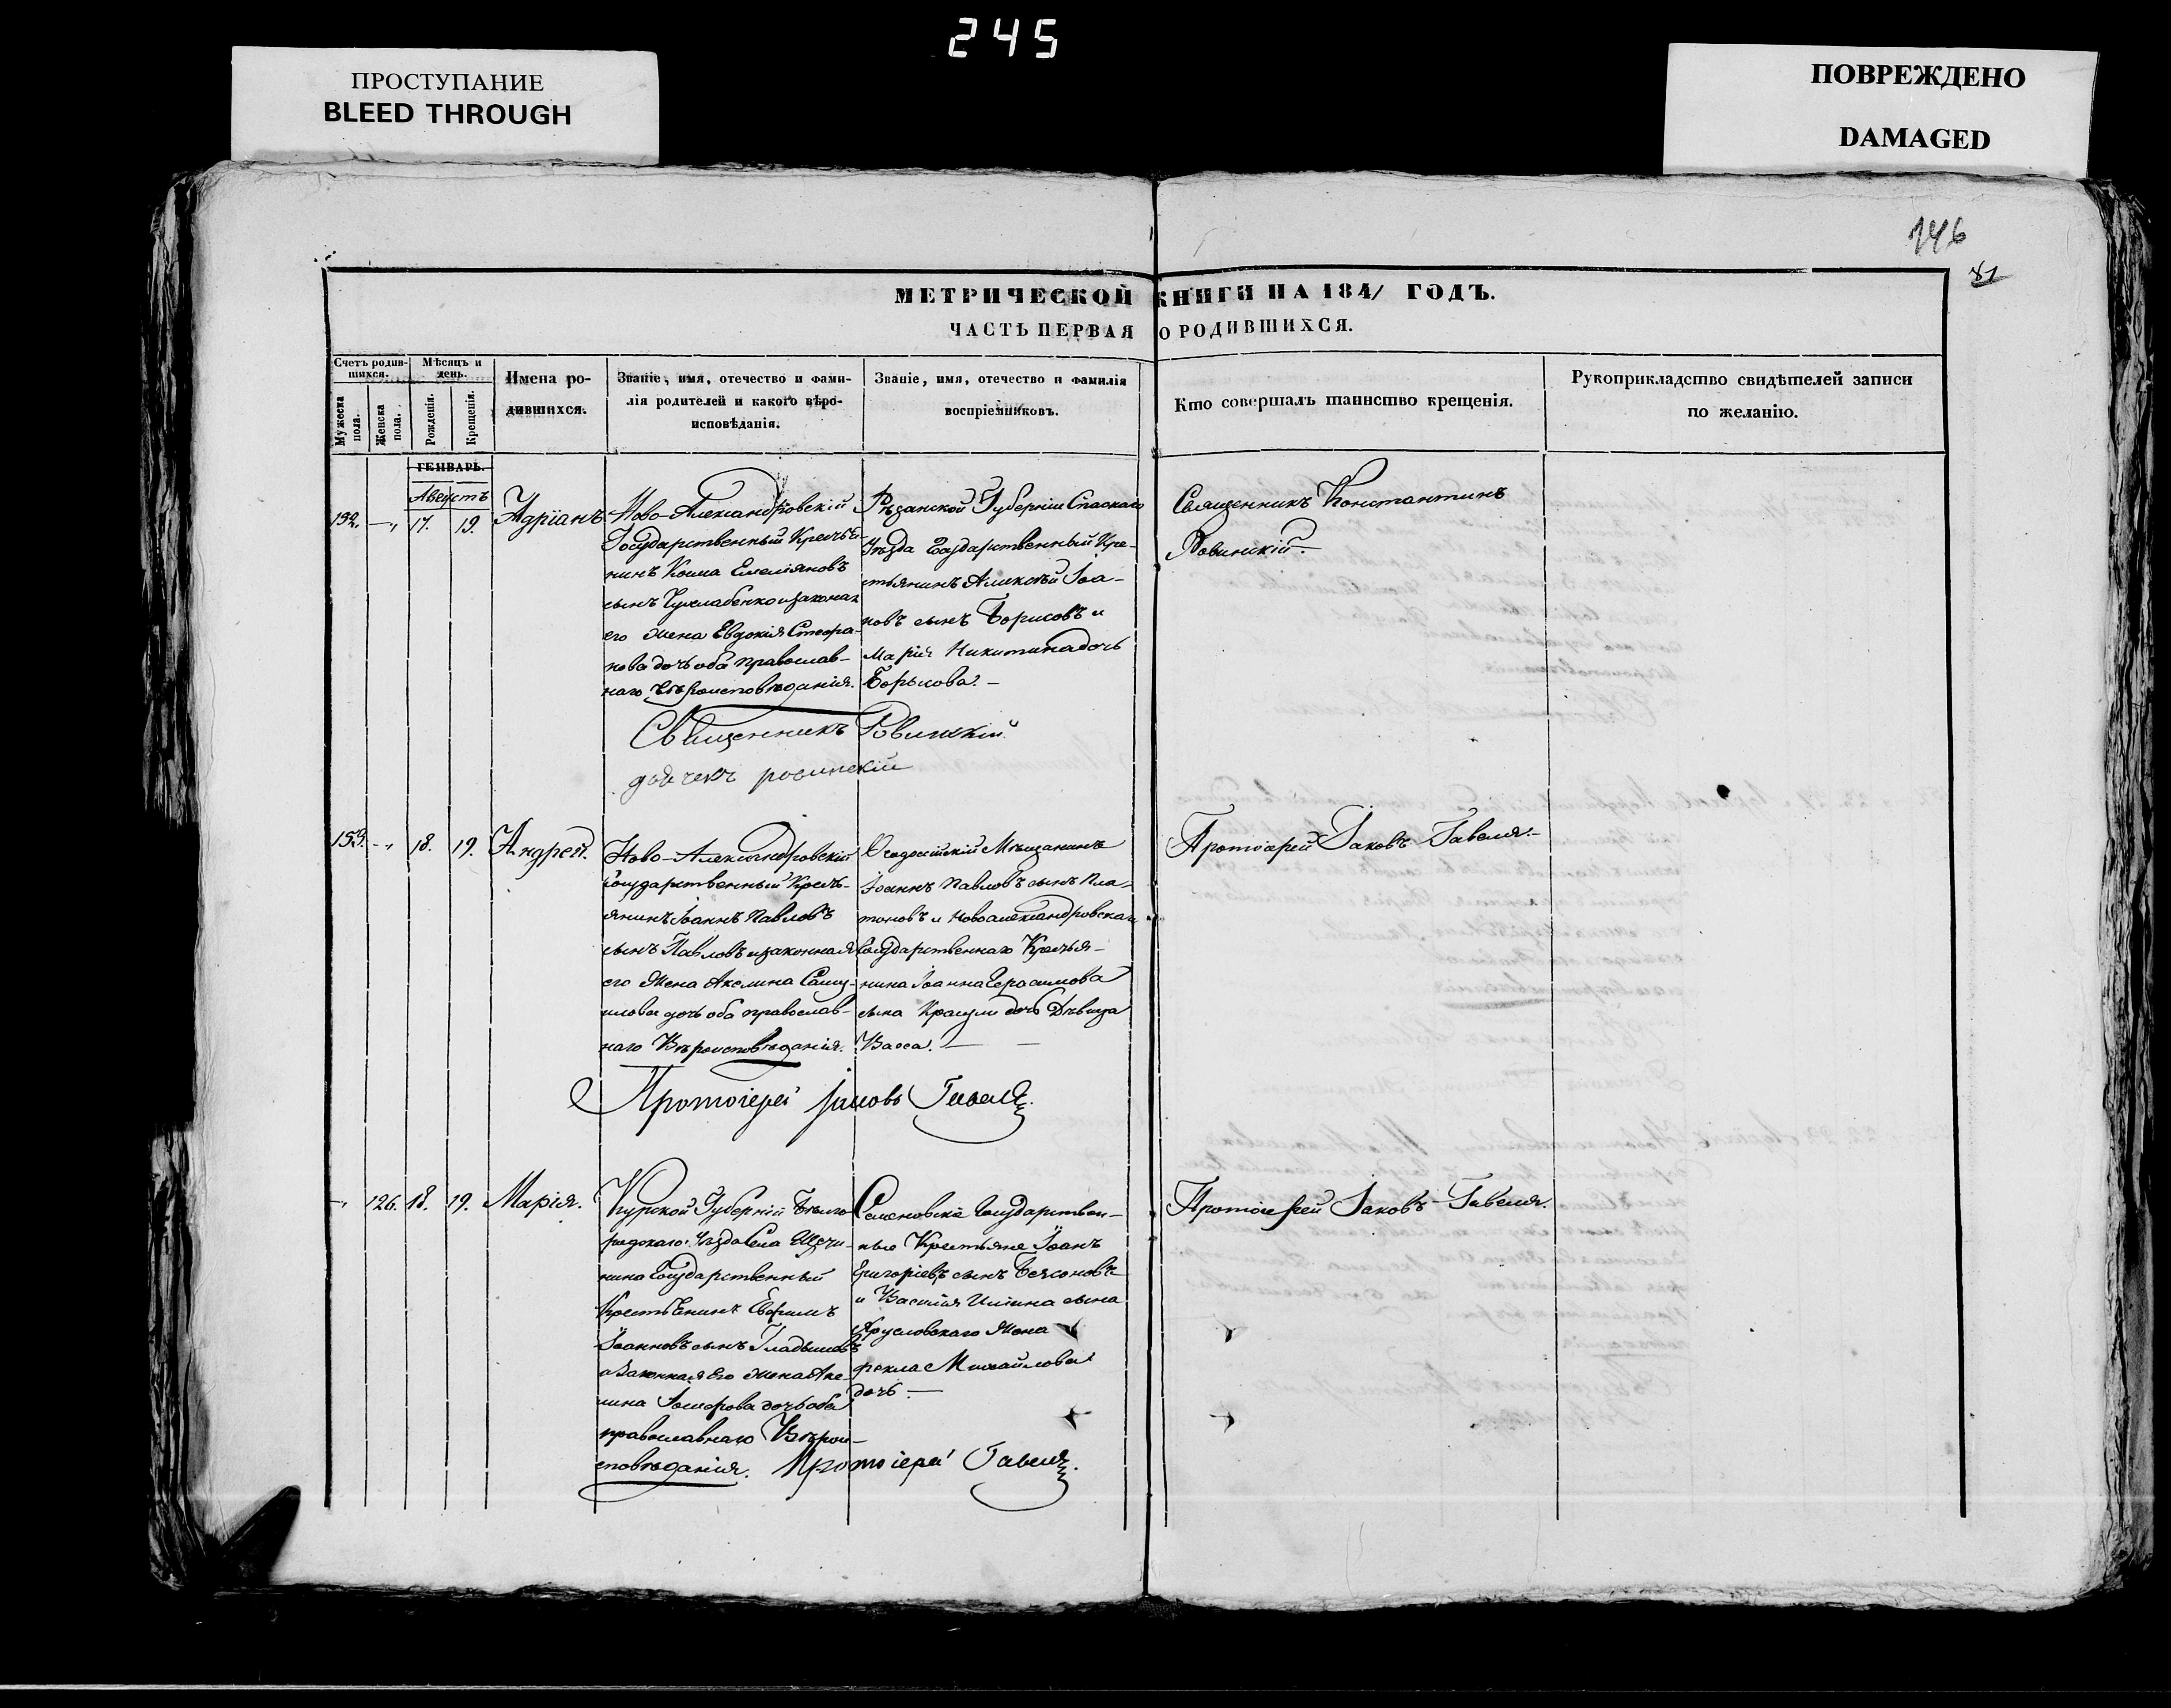 245
ПРОСТУПАНИЕ
BLEED THROUGH
ПОВРЕЖДЕНО
DAMAGED
146
81
МЕТРИЧЕСКОЙ КНИГИ НА 1841 ГОДЪ.
ЧАСТЬ ПЕРВАЯ О РОДИВШИХСЯ.
Счетъ родив-
шихся.
Мужеска
пола.
Женска
пола.
Мѣсяцъ и
день.
Рожденія.
Крещенія.
Имена ро-
дившихся.
Званіе, имя, отечество и фами-
лія родителей и какого вѣро-
исповѣданія.
Званіе, имя, отечество и фамилія
воспріемниковъ.
Кто совершалъ таинство крещенія.
Рукоприкладство свидѣтелей записи
по желанію.
ГЕНВАРЬ.
Августъ
152. 17. 19. Адріанъ
Ново-Александровскій
Государственный Крестья-
нинъ Косма Емеліяновъ
сынъ и законная
его жена Евдокія Стефа-
нова дочь оба православ-
наго Вѣроисповѣданія.
Рязанской Губерніи Спаскаго
Уѣзда Государственный Кре-
стьянинъ Алексѣй Іоа-
новъ сынъ Борисовъ и
Марія Никитина дочь
Борисова. -
Священникъ Константинъ
Ровинскій. -
Священникъ Ровинскій
дьячекъ
153. 18. 19. Андрей.
Ново-Александровскій
Государственный Кресть-
янинъ Іоаннъ Павловъ
сынъ Павловъ и законная
его жена Акелина
дочь оба православ-
наго Вѣроисповѣданія.
Ѳеодосійскій Мѣщанинъ
Іоаннъ Павловъ сынъ Пла-
тоновъ и Новоалександровскаго
Государственнаго Крестья-
нина Іоанна Герасимова
сына дочь Дѣвица
Васса. -
Протоіерей Іаковъ Гавеля. -
Протоіерей Іаковъ Гавеля.
126. 18. 19. Марія.
Курской Губерніи Бѣлго-
родскаго Уѣзда Села
Государственный
Крестьянинъ Евфимъ
Іоанновъ сынъ Гладышовъ
и Законная Его жена Аке-
лина дочь оба
православнаго Вѣрои-
сповѣданія.
Семеновскіе Государствен-
ные Крестьяне Іоанъ
Григоріевъ сынъ
и Василія Ильина сына
жена
Ѳекла Михайлова
дочь. -
Протоіерей Іаковъ Гавеля.
Протоіерей Гавеля.